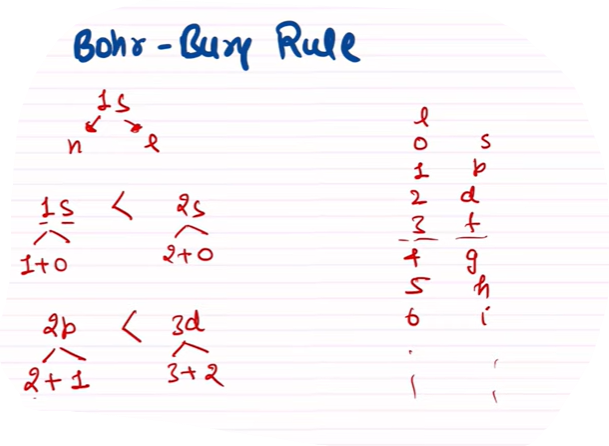 Bohr-Bury Rule
1s
n l
1s < 2s
1+0 2+0
2p < 3d
2+1 3+2
l
0 s
1 p
2 d
3 f
4 g
5 h
6 i